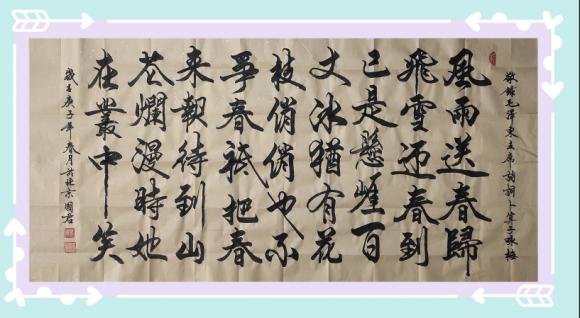 敬錄毛澤東主席詩詞卜算子詠梅
風雨送春歸
飛雪迎春到
已是懸崖百
丈冰猶有花
枝俏俏也不
爭春祗把春
来報待到山
花爛漫時她
在叢中笑
歲在庚子年春月於北京國君